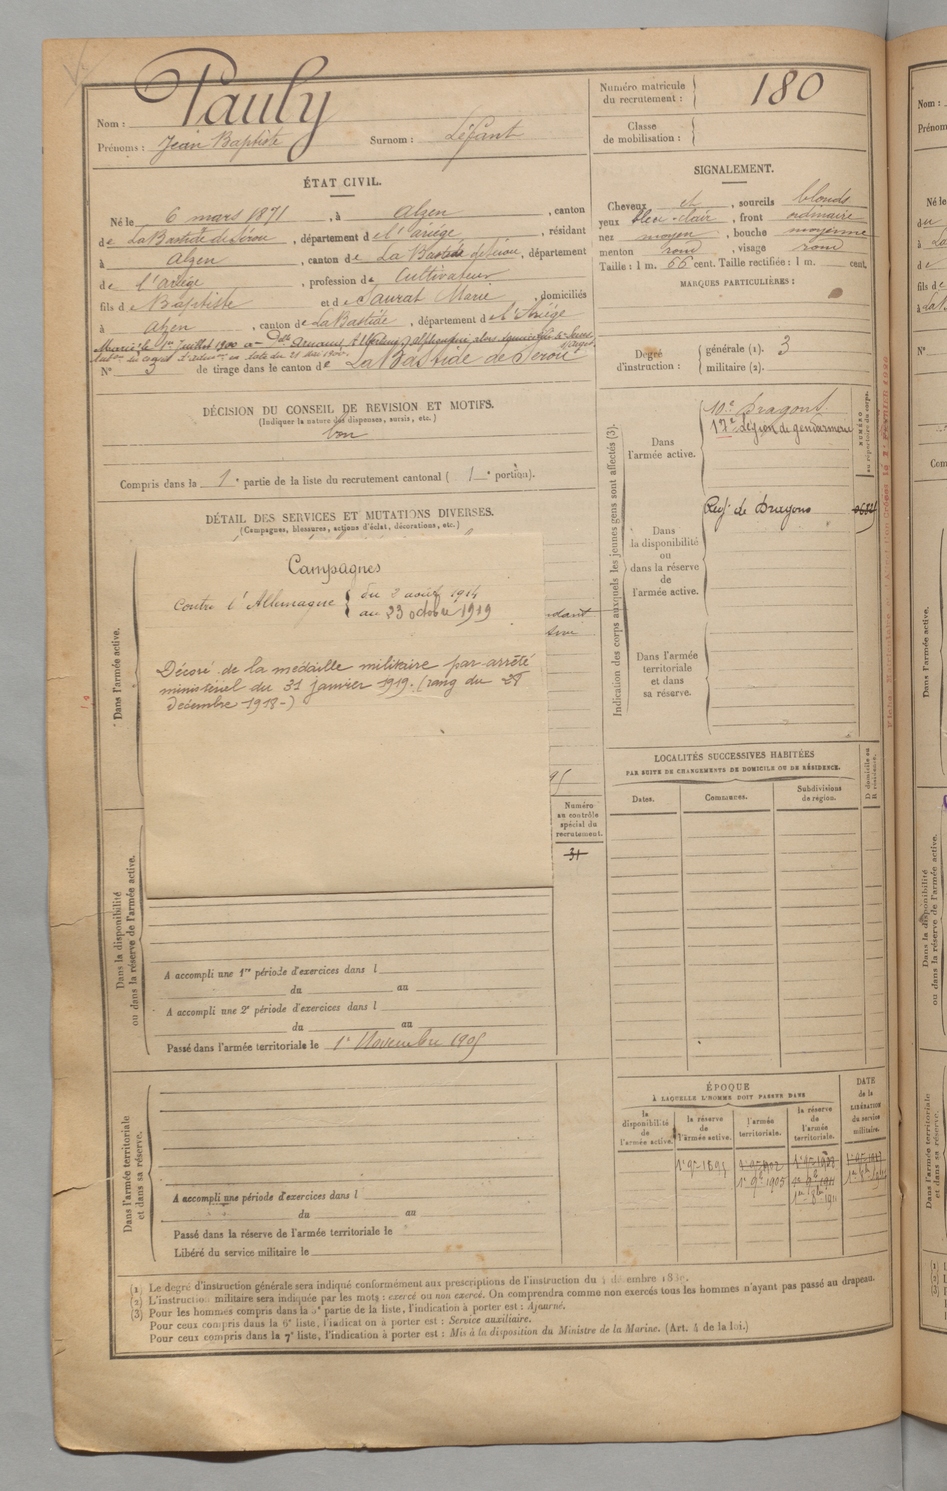 Pauly
Nom :
Prénoms : Jean Baptiste Surnom : Léfant
Numéro matricule
du recrutement : 180
Classe
de mobilisation :
ÉTAT CIVIL.
Né le 6 mars 1871, à Alzen, canton
de La Bastide de Sérou, département de l'Ariège, résidant
à Alzen, canton de La Bastide de Sérou, département
de l'Ariège, profession de Cultivateur
fils de Baptiste et de Saurat Marie, domiciliés
à Alzen, canton de La Bastide, département de l'Ariège
Marié le 1er Juillet 1900 à Dlle
N° 3 de tirage dans le canton de La Bastide de Sérou
SIGNALEMENT.
Cheveux et, sourcils blonds
yeux bleu clair, front ordinaire
nez moyen, bouche moyenne
menton rond, visage rond
Taille : 1 m. 66 cent. Taille rectifiée : 1 m. cent.
MARQUES PARTICULIÈRES :
Degré
d'instruction :
générale (1). 3
militaire (2).
DÉCISION DU CONSEIL DE REVISION ET MOTIFS.
(Indiquer la nature des dispenses, sursis, etc.)
bon
Compris dans la 1e partie de la liste du recrutement cantonal ( 1e portion).
DÉTAIL DES SERVICES ET MUTATIONS DIVERSES.
(Campagnes, blessures, actions d'éclat, décorations, etc.)
Campagnes
Contre l'Allemagne
du 2 août 1914
au 23 octobre 1919
Décoré de la médaille militaire par arrêté
ministériel du 31 janvier 1919. (rang du 28
décembre 1918-)
Dans l'armée active.
Dans la disponibilité
ou dans la réserve de l'armée active.
Numéro
au contrôle
spécial du
recrutement.
31
A accompli une 1re période d'exercices dans l
du au
A accompli une 2e période d'exercices dans l
du au
Passé dans l'armée territoriale le 1er Novembre 1905
Dans l'armée territoriale
et dans sa réserve.
A accompli une période d'exercices dans l
du au
Passé dans la réserve de l'armée territoriale le
Libéré du service militaire le
Indication des corps auxquels les jeunes gens sont affectés (3).
Dans
l'armée active.
10e Dragons
17e Légion de gendarmerie
NUMÉRO
au répertoire du corps.
Dans
la disponibilité
ou
dans la réserve
de
l'armée active.
Régt de Dragons
Dans l'armée
territoriale
et dans
sa réserve.
LOCALITÉS SUCCESSIVES HABITÉES
PAR SUITE DE CHANGEMENTS DE DOMICILE OU DE RÉSIDENCE.
Dates.
Communes.
Subdivisions
de région.
D domicile ou
R résidence.
ÉPOQUE
À LAQUELLE L'HOMME DOIT PASSER DANS
la
disponibilité
de
l'armée active.
la réserve
de
l'armée active.
l'armée
territoriale.
la réserve
de
l'armée
territoriale.
DATE
de la
LIBÉRATION
du service
militaire.
1er 9bre 1895
1er 9bre 1902
1er 9bre 1905
(1) Le degré d'instruction générale sera indiqué conformément aux prescriptions de l'instruction du
(2) L'instruction militaire sera indiquée par les mots : exercé ou non exercé. On comprendra comme non exercés tous les hommes n'ayant pas passé au drapeau.
(3) Pour les hommes compris dans la 5e partie de la liste, l'indication à porter est : Ajourné.
Pour ceux compris dans la 6e liste, l'indication à porter est : Service auxiliaire.
Pour ceux compris dans la 7e liste, l'indication à porter est : Mis à la disposition du Ministre de la Marine. (Art. 4 de la loi.)